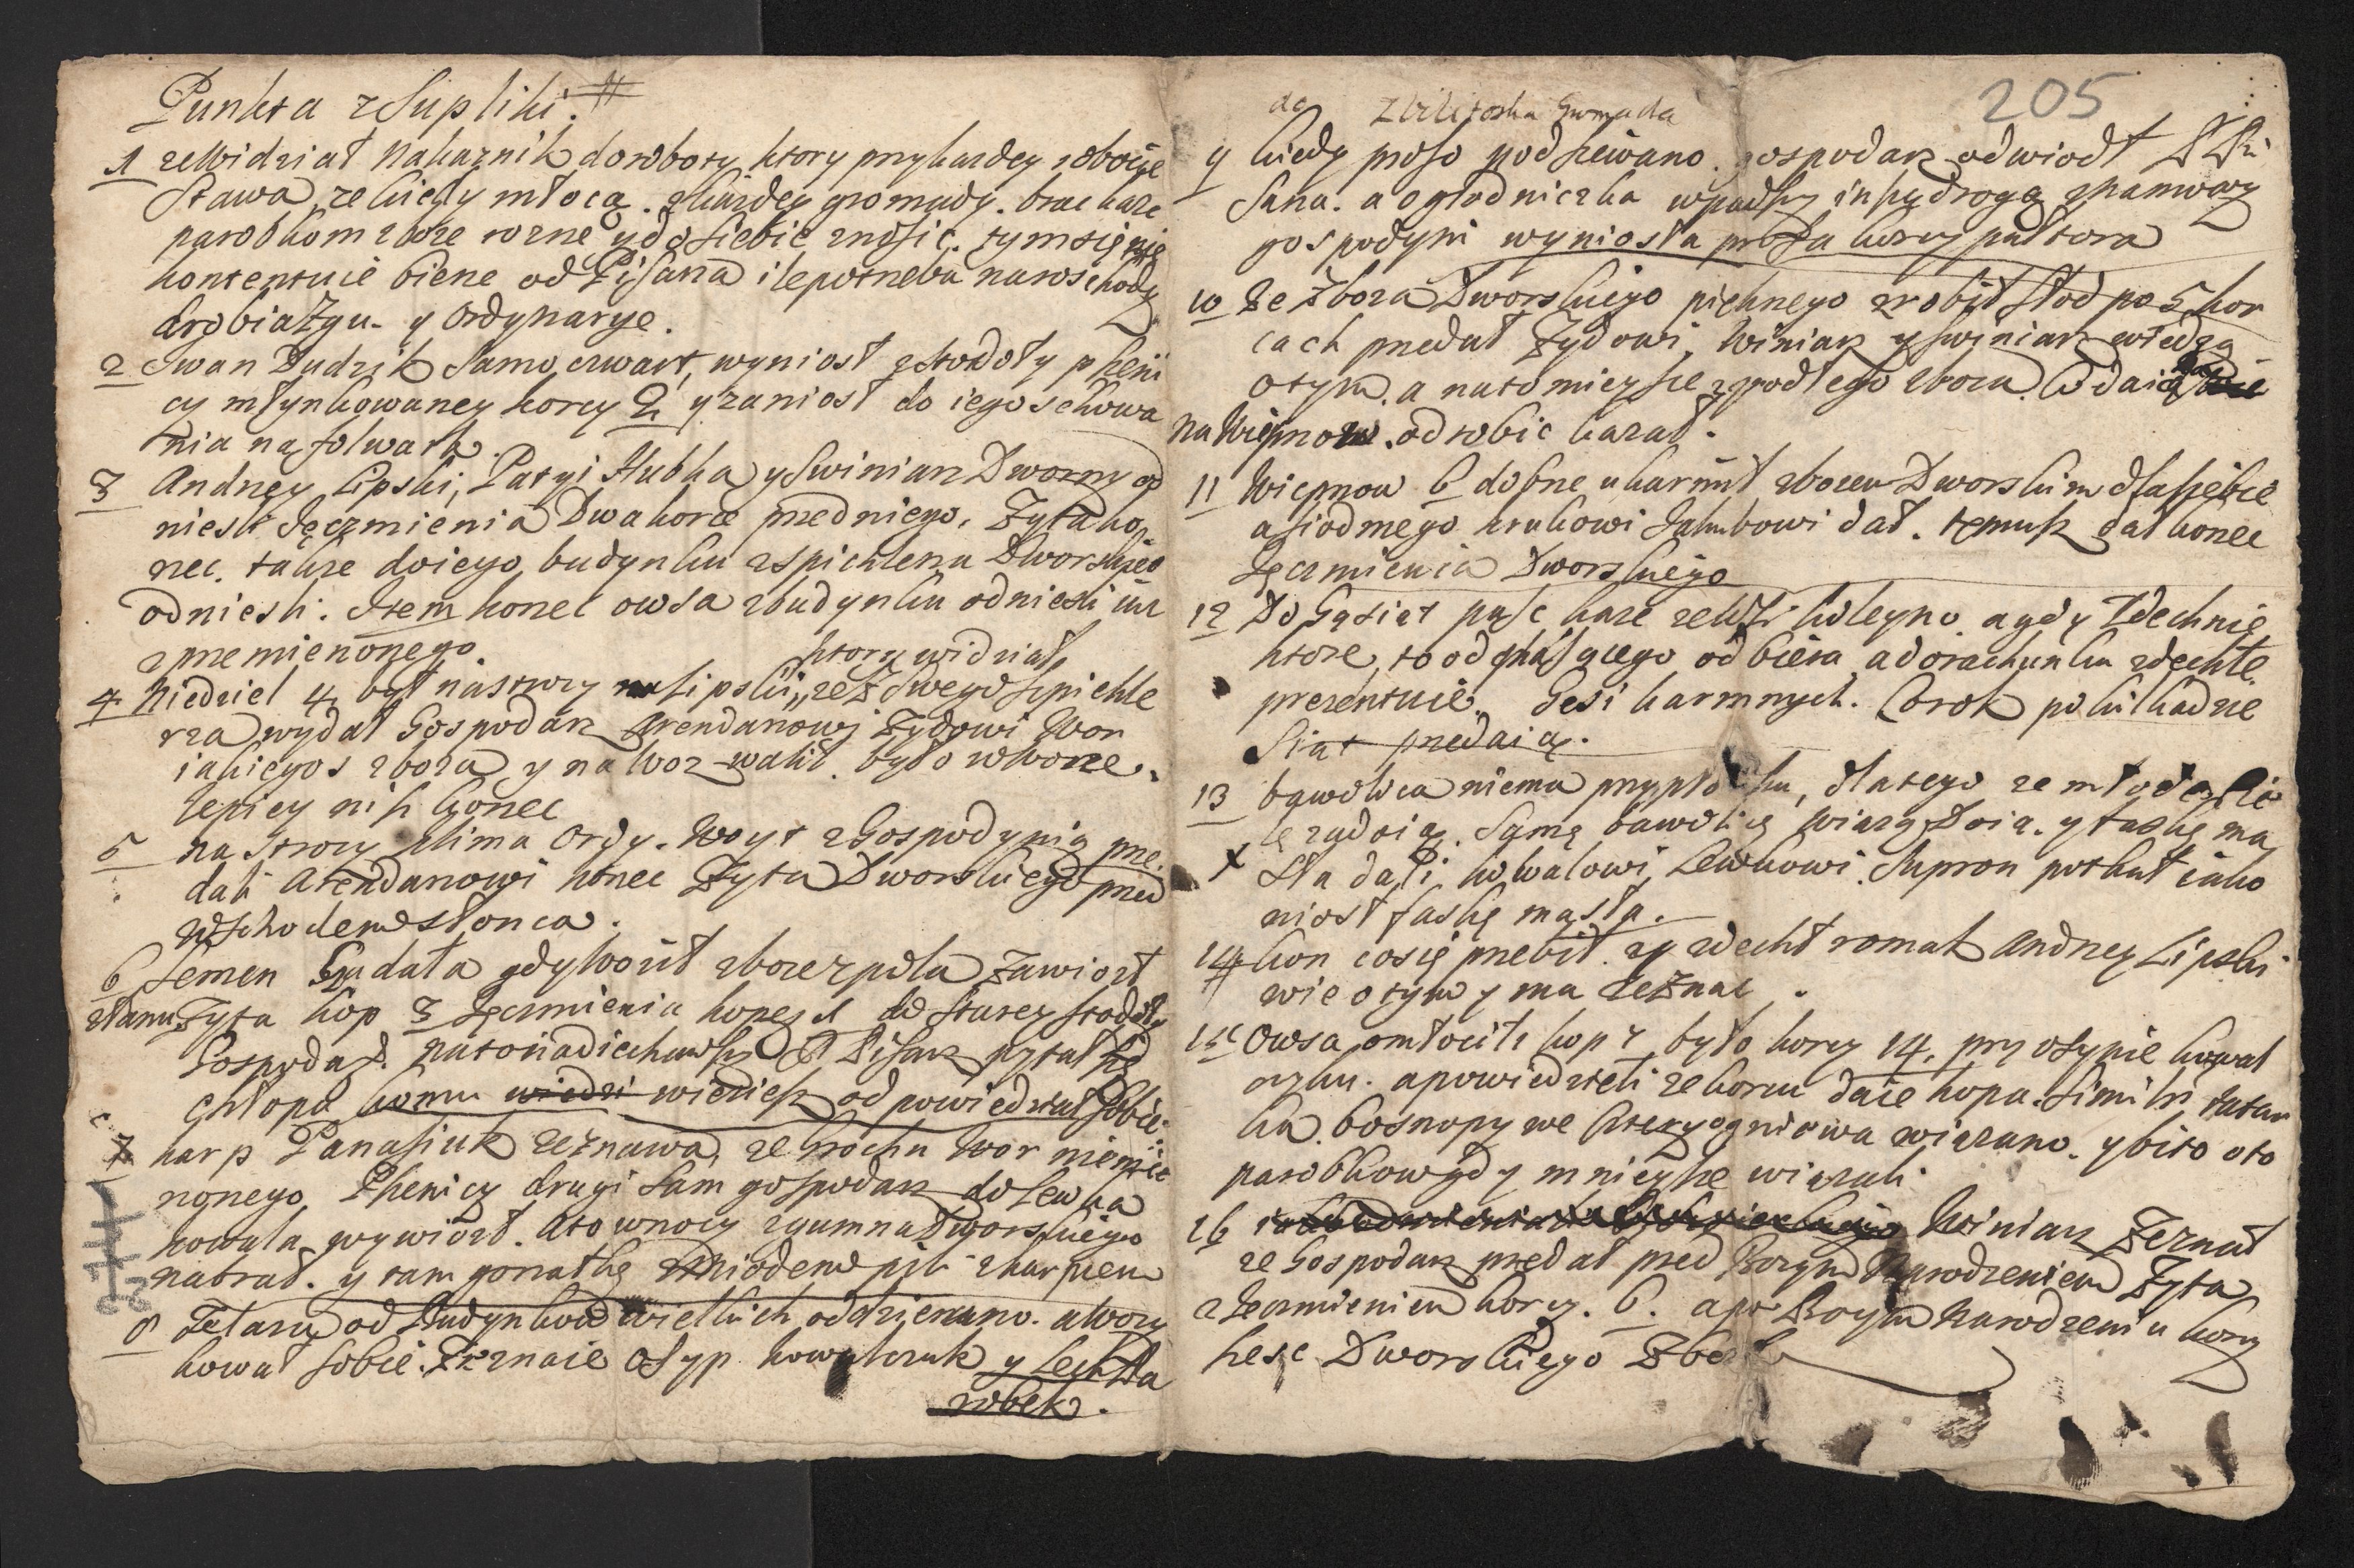 Punkta z Supliki.
1 ze Widział Nakaznik do roboty, ktory przy kazdey robocie
Stawa, ze kiedy młocą. z kazdey gromady. brac kaze
parobkom zboze rozne y do siebie znosic. tym się nie
kontentuie bierze od Pisarza ile potrzeba na rozchody
drobiazgu. y Ordynarye.
2 Iwan Dudzik Samo czwart, wyniosł z stodoły pszeni
cy młynkowaney korcy 2 y zaniosł do iego schowa
nia na folwark.
3 Andrzey Lipski, Patyi Hubka y Swiniarz Dworny od
niesli Jęczmienia Dwa korce przedniego. Zyta ko
rzec. takze do iego budynku z spichlerza Dworskiego
odniesli. Item korzec owsa z budynku odniesli iuz
z przemienionego.
ktory widział
4 Niedziel 4 był na strozy Lipski, ze z Swego Szpichle
rza wydał Gospodarz Arendarzowi Zydowi Wor
iakiegos zboza y na woz walił. było w worze.
lepiey nisz korzec
5 na Strozy Klima Ordy. Woyt z Gospodynią prze
dali Arendarzowi korzec Zyta Dworskiego przed
wschodem słonca.
6 Semen Gudała gdy woził zboze z pola zawiozł
z łanu Zyta kop 3 Jęczmienia kopę 1 do starey stodoły
Gospodarz. na to nadiechawszy Pisarz pytał się
chłopa komu wiedzi wieziesz odpowiedział sobie.
7 karp Panasiuk zeznawa, ze Grochu Wor niemie
rzonego Pszenicy drugi Sam gospodarz do Lewka
kowala wywiozł. A to w nocy z gumna Dworskiego
nabrał. y tam gorzałkę z Miodem pili z karpiem
8 Zelazo od Budynkow wielkich oddzierano. a
kował sobie. Zeznaie Osyp kowalczuk y Lesko Pa
robek.
205
do Zbilitoska Gromada
9 kiedy proso podsiewano gospodarz odwiodł P. Pi
sarza. a ogrodniczka wpadszy inszą drogą z namowy
gospodyni wyniosła prosa korcy pułtora
10 Ze Zboza Dworskiego pięknego zrobił słod po 5 kor
cach przedał Zydowi, Winiarz y swiniarz wiedzą
o tym. a na to mieysce z podłego zboza. Co daią
na Wieprzow. odrobic kazał.
11 Wieprzow 6 dobrze ukarmił zbozem Dworskim dla siebie
a siodmego krukowi Jakubowi dał. temusz dał korzec
Jęczmienia Dworskiego
12 Do Gąsiąt pasc kaze ze Wsi koleyno a gdy zdechnie
ktore, to od pasącego odbiera a do rachunku zdechłe
prezentuie. Gęsi karmnych. Co rok po kilkadzie
siąt przedaią.
13 bawolica niema przypłodku, dlatego ze młode cielę
ta zadoią. Samą bawolicę wiazą Doią. y faskę ma
x sła dali kowalowi, Lewkowi. Supron potkał iako
niosł faskę masła.
14 kon co się przebił. zdechł romak Andrzey Lipski
wie o tym y ma zeznac.
15 Owsa omłocili kop 7 było korcy 14, przy Osypie kowal
czyku. a powiedzieli ze korcu daie kopa. Similis tatar
ka. bo snopy we cztery ogniowa wiązano. y bito oto
parobkow gdy mnieysze wiązali
16 Winiarz Zeznał
ze Gospodarz przedał przed Bozym Narodzeniem Zyta
z Jęczmieniem korcy. 6. a po Bozym Narodzeniu korcy
szesc Dworskiego Zboza